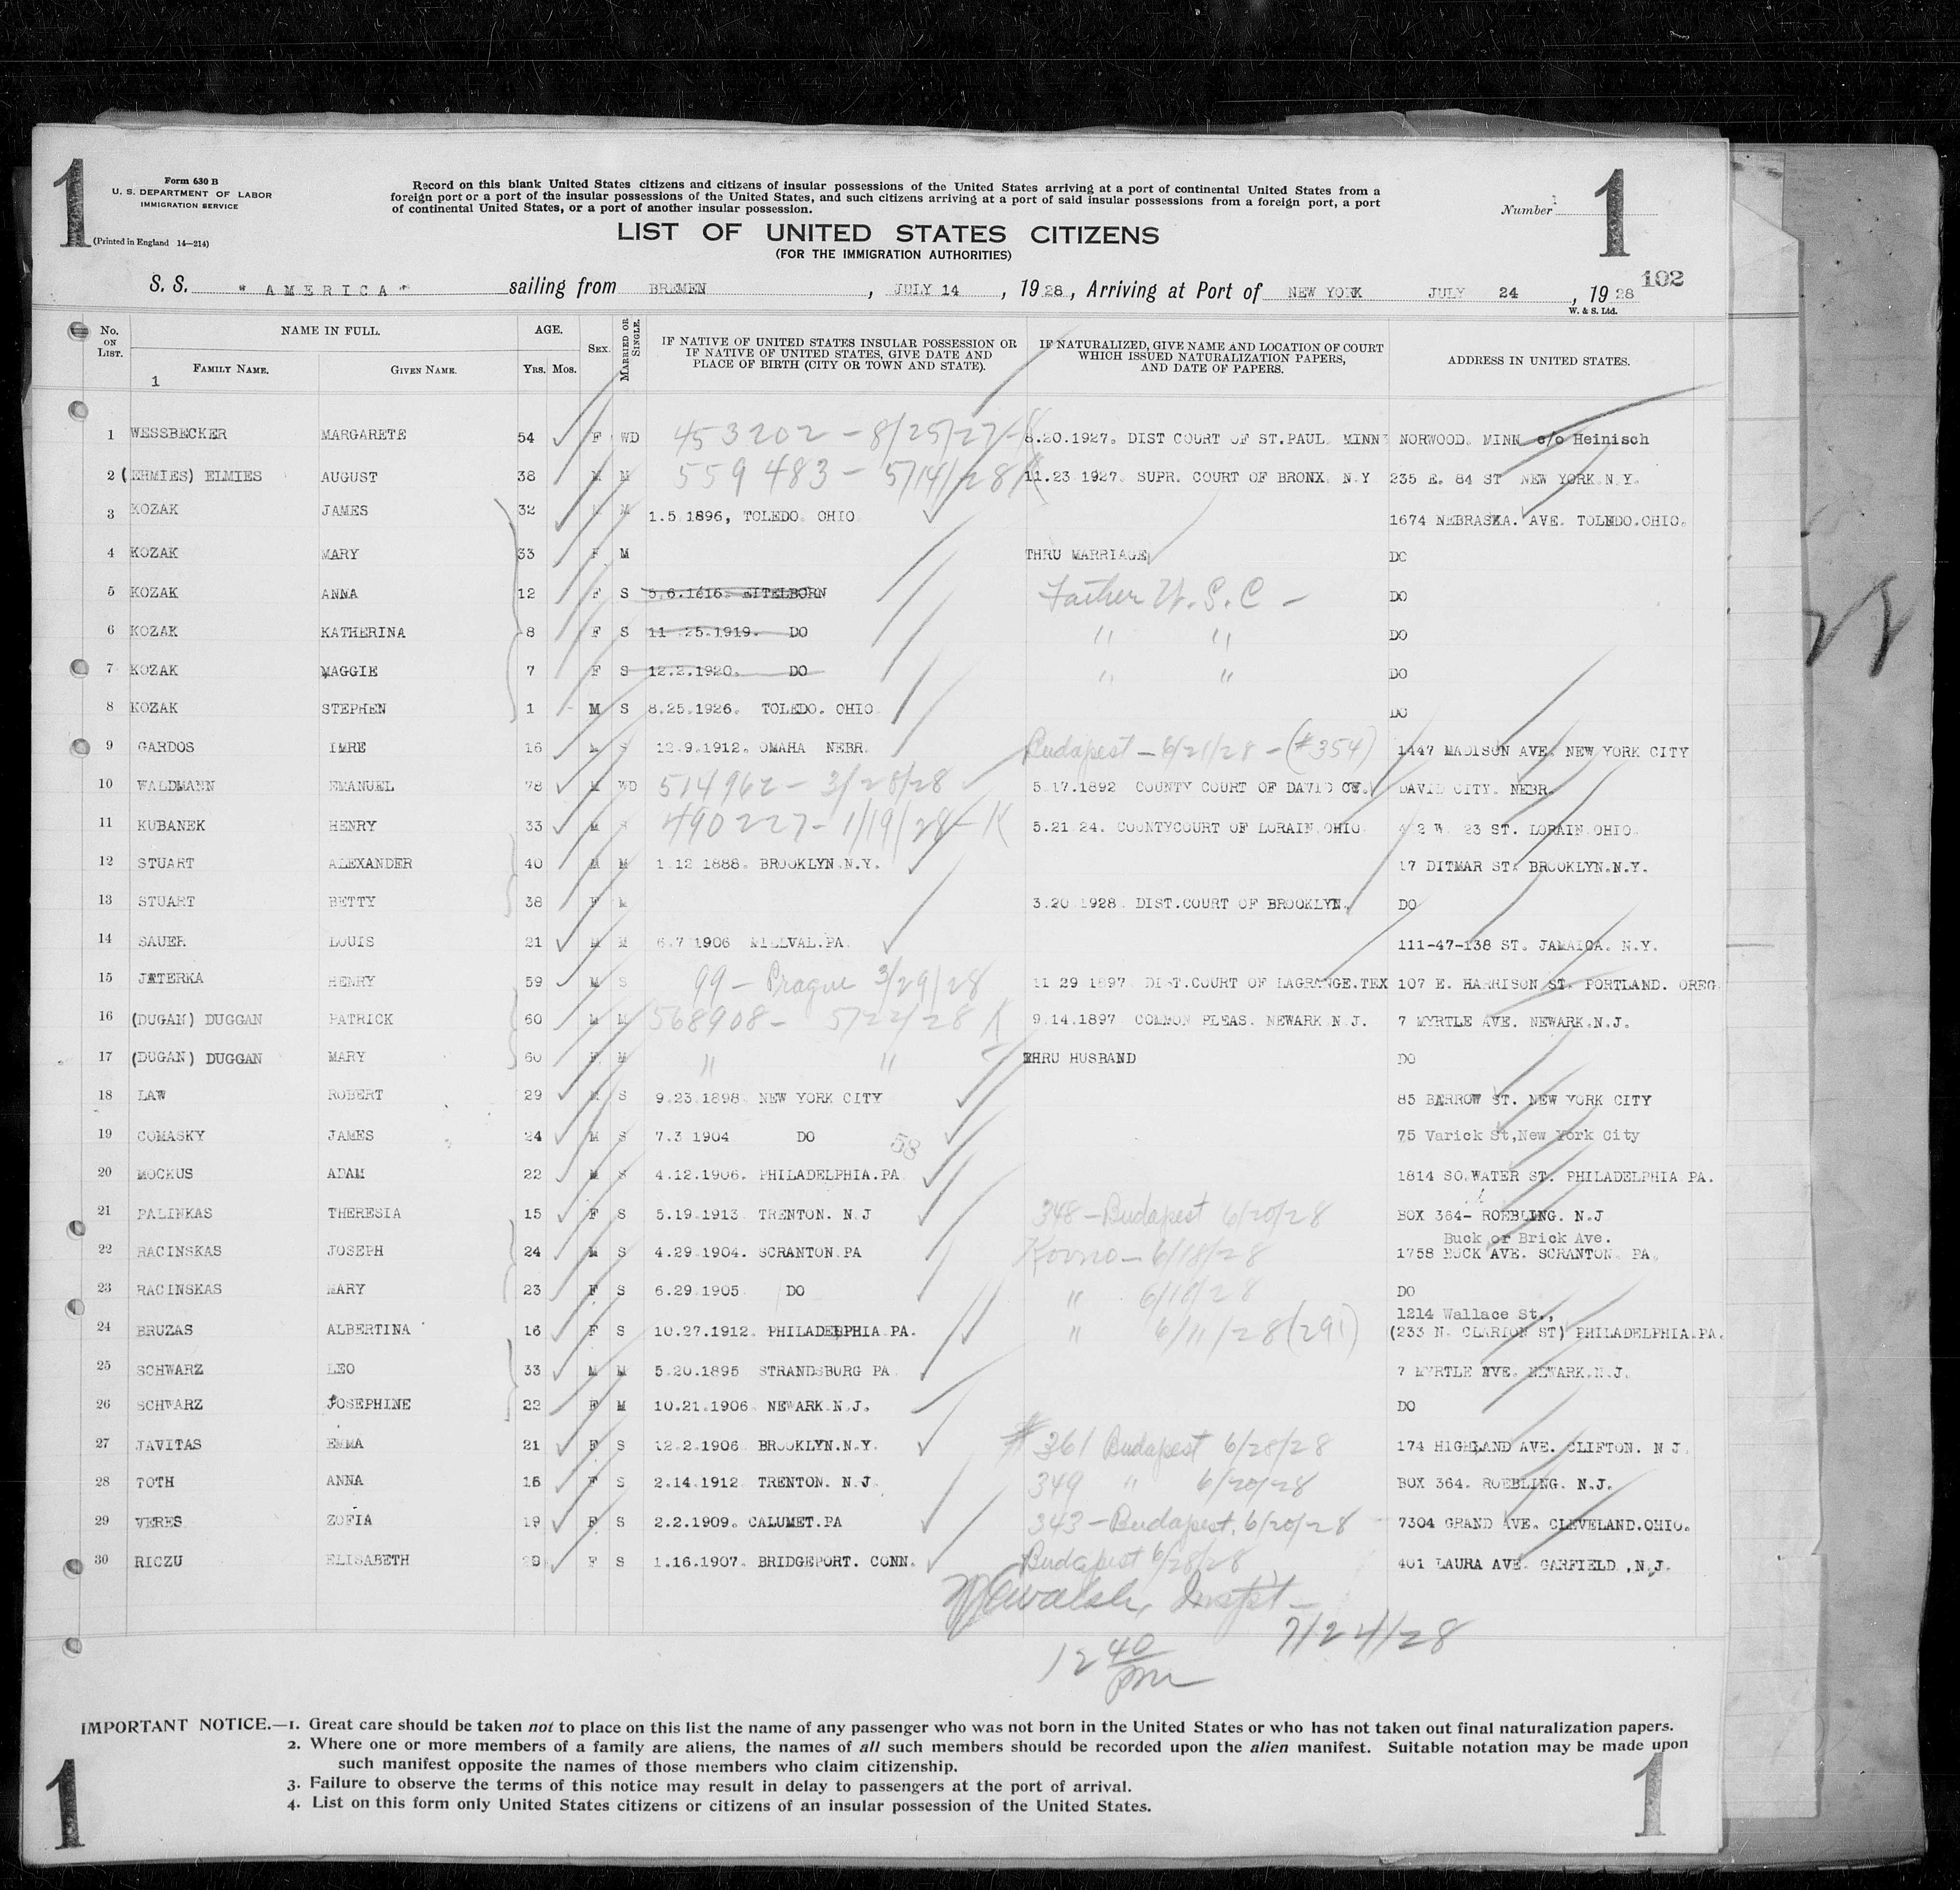 1
Form 630 B
U. S. DEPARTMENT OF LABOR
IMMIGRATION SERVICE
(Printed in England 14—214)
Record on this blank United States citizens and citizens of insular possessions of the United States arriving at a port of continental United States from a
foreign port or a port of the insular possessions of the United States, and such citizens arriving at a port of said insular possessions from a foreign port, a port
of continental United States, or a port of another insular possession.
Number 1
1
LIST OF UNITED STATES CITIZENS
(FOR THE IMMIGRATION AUTHORITIES)
102
S. S. "AMERICA" sailing from BREMEN, JULY 14, 1928, Arriving at Port of NEW YORK JULY 24, 1928
W. & S. Ltd.
No. ON LIST. NAME IN FULL. AGE. SEX. MARRIED OR SINGLE. IF NATIVE OF UNITED STATES INSULAR POSSESSION OR IF NATIVE OF UNITED STATES, GIVE DATE AND PLACE OF BIRTH (CITY OR TOWN AND STATE). IF NATURALIZED, GIVE NAME AND LOCATION OF COURT WHICH ISSUED NATURALIZATION PAPERS, AND DATE OF PAPERS. ADDRESS IN UNITED STATES.
1 FAMILY NAME. GIVEN NAME. Yrs. Mos.
1 WESSBECKER MARGARETE 54 F WD 453202 - 8/25/27 - K 8.20.1927. DIST COURT OF ST.PAUL. MINN NORWOOD. MINN c/o Heinisch
2 (EHMIES) ELMIES AUGUST 38 M M 559483 - 5/14/28 K 11.23 1927. SUPR. COURT OF BRONX. N.Y 235 E. 84 ST NEW YORK.N.Y.
3 KOZAK JAMES 32 M M 1.5.1896, TOLEDO. OHIO 1674 NEBRASKA. AVE. TOLEDO.OHIO.
4 KOZAK MARY 33 F M THRU MARRIAGE DO
5 KOZAK ANNA 12 F S 5.6.1616. EITELBORN Father U.S.C - DO
6 KOZAK KATHERINA 8 F S 11 25.1919. DO " " DO
7 KOZAK MAGGIE 7 F S 12.2.1920. DO " " DO
8 KOZAK STEPHEN 1 M S 8.25.1926. TOLEDO. OHIO DO
9 GARDOS IMRE 16 M S 12.9.1912. OMAHA NEBR. Budapest - 6/21/28 - (#354) 1447 MADISON AVE. NEW YORK CITY
10 WALDMANN EMANUEL 78 M WD 514962 - 3/28/28 5.17.1892 COUNTY COURT OF DAVID CY. DAVID CITY. NEBR.
11 KUBANEK HENRY 33 M S 490227 - 1/19/28 - K 5.21 24. COUNTYCOURT OF LORAIN.OHIO 2 W. 23 ST. LORAIN.OHIO.
12 STUART ALEXANDER 40 M M 1.12 1888. BROOKLYN.N.Y. 17 DITMAR ST. BROOKLYN.N.Y.
13 STUART BETTY 38 F M 3.20 1928. DIST.COURT OF BROOKLYN. DO
14 SAUER LOUIS 21 M M 6.7 1906 MILLVAL.PA. 111-47-138 ST. JAMAICA. N.Y.
15 JATERKA HENRY 59 M S 99 - Prague 3/29/28 11 29 1897. DIST.COURT OF LAGRANGE.TEX 107 E. HARRISON ST. PORTLAND. OREG.
16 (DUGAN) DUGGAN PATRICK 60 M M 568908 - 5/22/28 K 9.14.1897 COMMON PLEAS. NEWARK N.J. 7 MYRTLE AVE. NEWARK.N.J.
17 (DUGAN) DUGGAN MARY 60 F M " " THRU HUSBAND DO
18 LAW ROBERT 29 M S 9.23.1898. NEW YORK CITY 85 BARROW ST. NEW YORK CITY
19 COMASKY JAMES 24 M S 7.3 1904 DO 58 75 Varick St,New York City
20 MOCKUS ADAM 22 M S 4.12.1906. PHILADELPHIA.PA 1814 SO.WATER ST. PHILADELPHIA PA.
21 PALINKAS THERESIA 15 F S 5.19.1913 TRENTON. N.J 348 - Budapest 6/20/28 BOX 364- ROEBLING. N.J
Buck or Brick Ave.
22 RACINSKAS JOSEPH 24 M S 4.29.1904. SCRANTON.PA Kovno - 6/18/28 1758 BUCK AVE. SCRANTON. PA.
23 RACINSKAS MARY 23 F S 6.29.1905 DO " 6/18/28 DO
1214 Wallace St.,
24 BRUZAS ALBERTINA 16 F S 10.27.1912. PHILADELPHIA.PA. " 6/11/28 (291) (233 N. CLARION ST) PHILADELPHIA.PA.
25 SCHWARZ LEO 33 M M 5.20.1895 STRANDSBURG PA. 7 MYRTLE AVE. NEWARK.N.J.
26 SCHWARZ JOSEPHINE 22 F M 10.21.1906 NEWARK.N.J. DO
27 JAVITAS EMMA 21 F S 12.2.1906 BROOKLYN.N.Y. #361 Budapest 6/28/28 174 HIGHLAND AVE. CLIFTON. N J
28 TOTH ANNA 16 F S 2.14.1912 TRENTON. N.J. 349 " 6/20/28 BOX 364. ROEBLING. N.J.
29 VERES ZOFIA 19 F S 2.2.1909. CALUMET.PA 343 - Budapest. 6/20/28 7304 GRAND AVE. CLEVELAND.OHIO.
30 RICZU ELISABETH 20 F S 1.16.1907. BRIDGEPORT. CONN. Budapest 6/28/28 401 LAURA AVE. GARFIELD ,N.J.
Walsh, Insp't -
7/24/28
12 40 pm
IMPORTANT NOTICE.—1. Great care should be taken not to place on this list the name of any passenger who was not born in the United States or who has not taken out final naturalization papers.
2. Where one or more members of a family are aliens, the names of all such members should be recorded upon the alien manifest. Suitable notation may be made upon
such manifest opposite the names of those members who claim citizenship.
3. Failure to observe the terms of this notice may result in delay to passengers at the port of arrival.
4. List on this form only United States citizens or citizens of an insular possession of the United States.
1
1